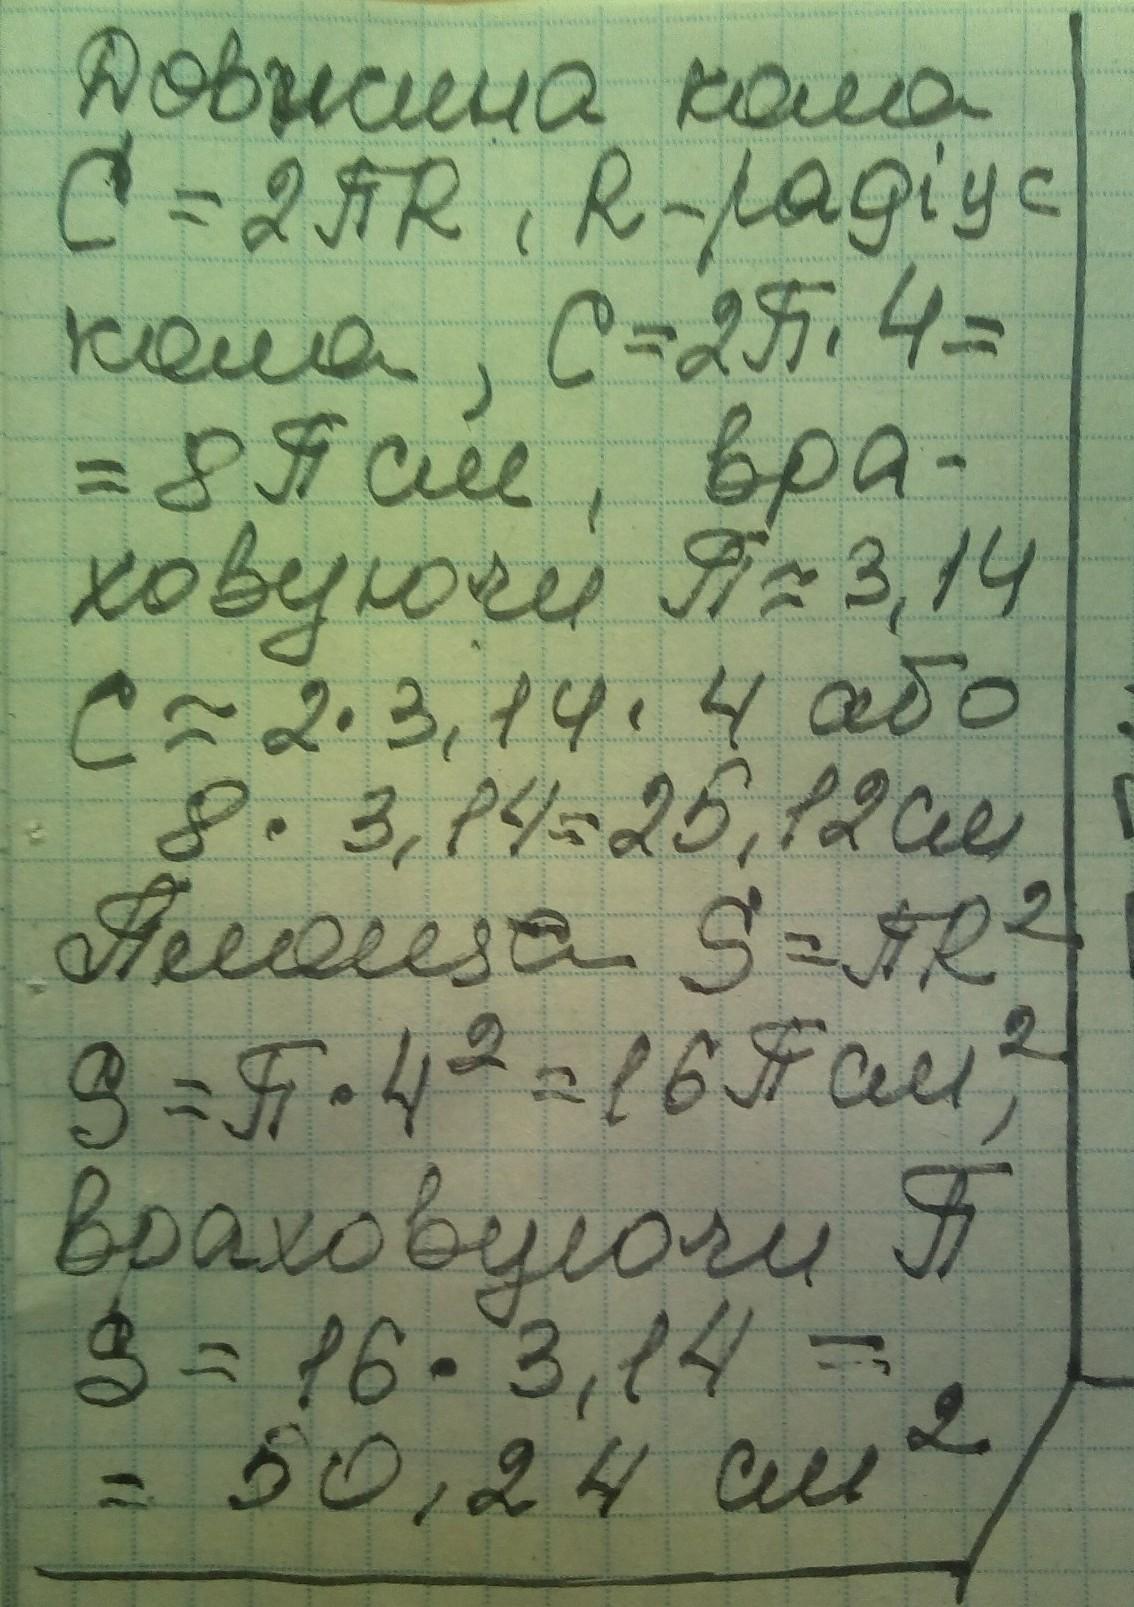 Довжина кола
C = 2πR, R – радіус
кола, C = 2π · 4 =
= 8π см, вра-
ховуючи π ≈ 3,14
C ≈ 2 · 3,14 · 4 або
8 · 3,14 = 25,12 см
Площа S = πR²
S = π · 4² = 16π см²,
враховуючи π
S = 16 · 3,14 =
= 50,24 см²